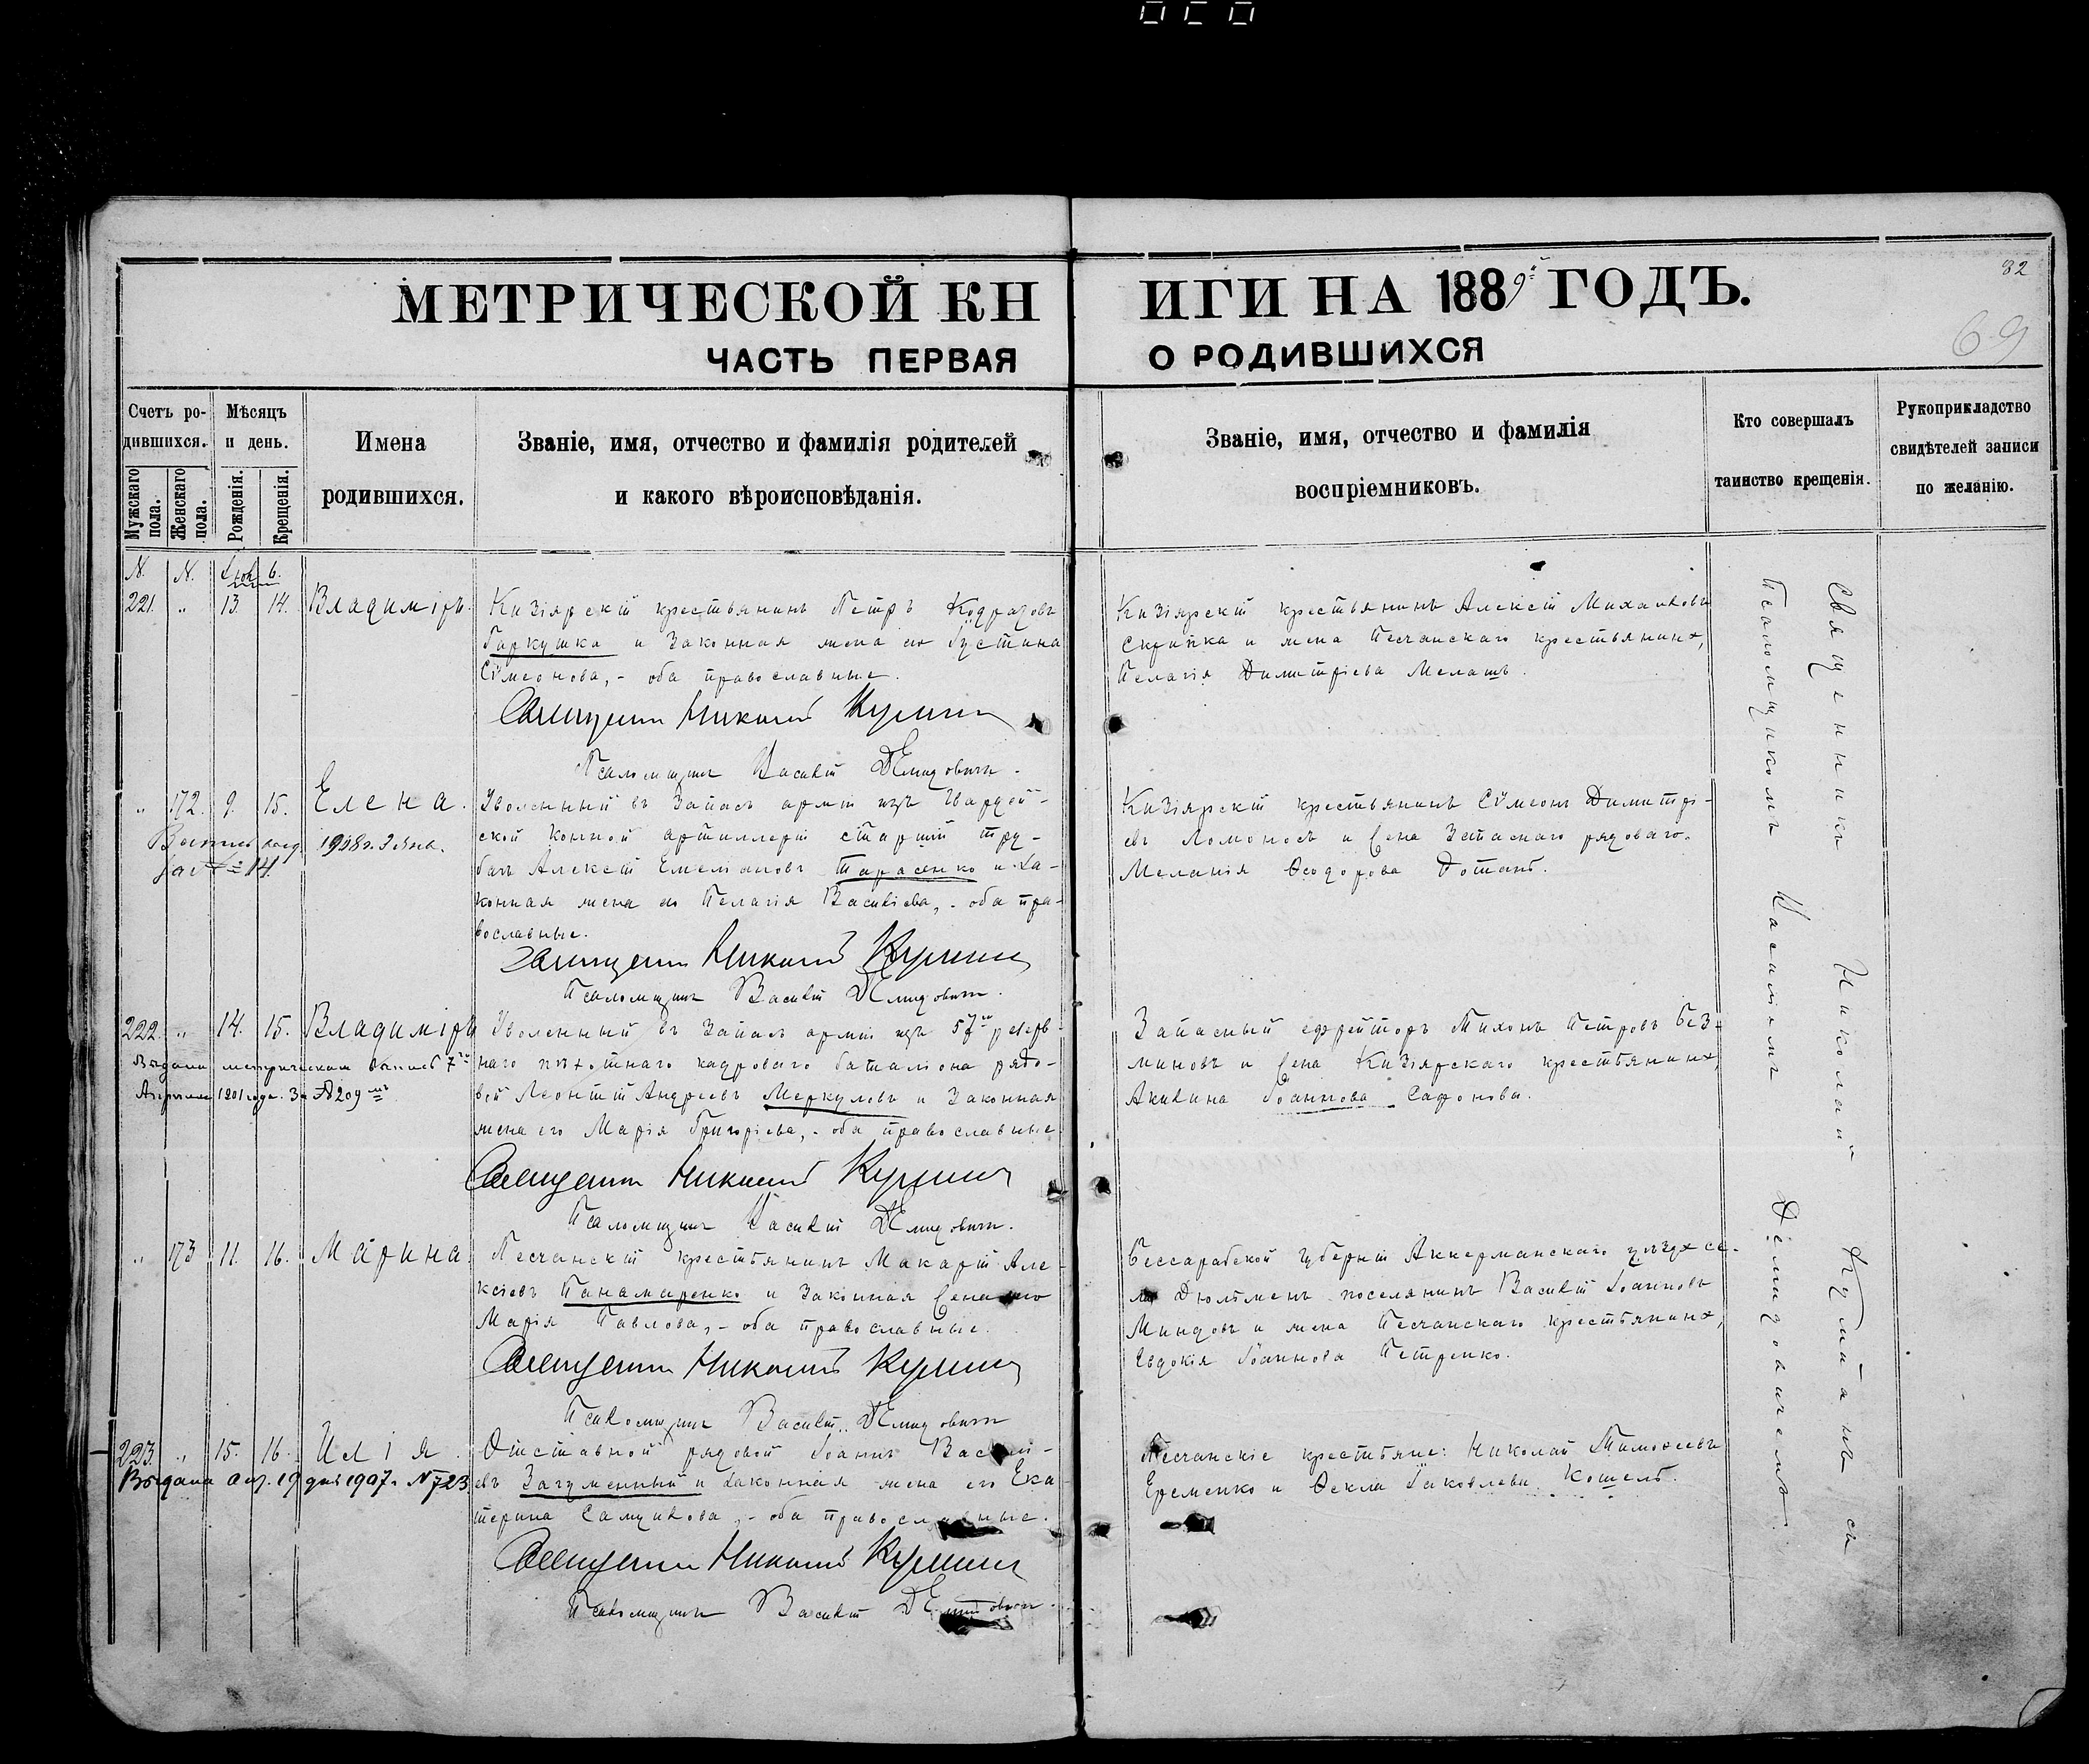 МЕТРИЧЕСКОЙ КНИГИ НА 1889й ГОДЪ.
32
69
ЧАСТЬ ПЕРВАЯ О РОДИВШИХСЯ
Счетъ родившихся.
Мужскаго пола.
Женскаго пола.
Мѣсяцъ и день.
Рожденія.
Крещенія.
Имена
родившихся.
Званіе, имя, отчество и фамилія родителей
и какого вѣроисповѣданія.
Званіе, имя, отчество и фамилія
воспріемниковъ.
Кто совершалъ
таинство крещенія.
Рукоприкладство
свидѣтелей записи
по желанію.
N. N.
221. „ 13 14. Владиміръ.
Кизіярскій крестьянинъ Петръ
Гаркушка и законная жена его Іустина
Сѵмеонова, - оба православные.
Священникъ Николай
Псаломщикъ Василій Демидовичъ.
Кизіярскій крестьянинъ Алексій Михаиловъ
Скрипка и жена Песчанскаго крестьянина,
Пелагія Димитріева Мелашъ.
„ 172. 9. 15. Елена.
1908 г. 3 Янв.
за № 14
Уволенный въ запасъ арміи изъ Гвардей-
ской конной артиллеріи старшій тру-
бачъ Алексій Емеліановъ Тарасенко и за-
конная жена его Пелагія Василіева, - оба пра-
вославные.
Священникъ Николай
Псаломщикъ Василій Демидовичъ.
Кизіярскій крестьянинъ Сѵмеонъ Димитрі-
евъ Ломоносъ и жена запаснаго рядоваго
Меланія Ѳеодорова
222. „ 14. 15. Владиміръ
Выдана метрическая выпись 7го
Апрѣля 1901 года. За №209мъ
Уволенный въ запасъ арміи изъ 57го резерв-
наго пѣхотнаго кадроваго баталіона рядо-
вой Леонтій Андреевъ Меркуловъ и законная
жена его Марія Григоріева, - оба православные
Священникъ Николай
Псаломщикъ Василій Демидовичъ.
Запасный ефрейторъ Тихонъ Петровъ Без-
миновъ и жена Кизіярскаго крестьянина,
Акилина Іоаннова Сафонова.
„ 173 11. 16. Марина.
Песчанскій крестьянинъ Макарій Але-
ксіевъ Панамаренко и законная жена его
Марія Павлова, - оба православные.
Священникъ Николай
Псаломщикъ Василій Демидовичъ
Бессарабской губерніи Аккерманскаго уѣзда се-
ла Дюльменъ поселянинъ Василій Іоанновъ
Миндовъ и жена Песчанскаго крестьянина,
Евдокія Іоаннова Петренко.
223. „ 15. 16. Илія
Выдана 19 дня 1907 г. №723
Отставной рядовой Іоаннъ Василі-
евъ Загуменный и законная жена его Ека-
терина Самуилова, - оба православные.
Священникъ Николай
Псаломщикъ Василій Демидовичъ.
Песчанскіе крестьяне: Николай Тимоѳеевъ
Еременко и Ѳекла Іаковлева Кошель.
Священникъ Николай съ
Псаломщикомъ Василіемъ Демидовичемъ.